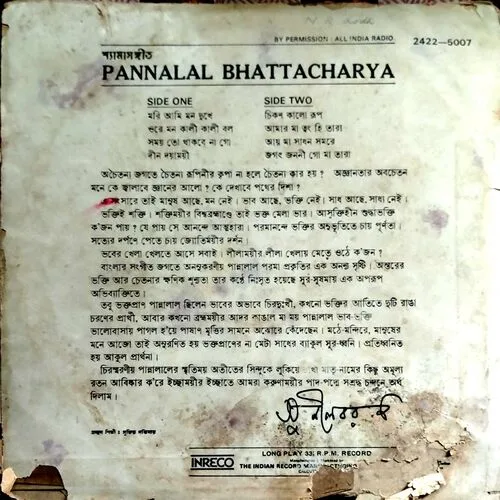 BY PERMISSION : ALL INDIA RADIO
2422-5007
শ্যামাসঙ্গীত
PANNALAL BHATTACHARYA
SIDE ONE
মরি আমি মন দুখে
ওরে মন কালী কালী বল
সময় তো থাকবে না গো
দীন দয়াময়ী
SIDE TWO
চিকণ কালো রূপ
আমার মা ত্বং হি তারা
আয় মা সাধন সমরে
জগৎ জননী গো মা তারা
অচৈতন্য জগতে চৈতন্য রূপিনীর কৃপা না হলে চৈতন্য কার হয় ? অজ্ঞানতার অবচেতন
মনে কে জ্বালাবে জ্ঞানের আলো ? কে দেখাবে পথের দিশা ?
এ সংসারে তাই মানুষ আছে, মন নেই। ভাব আছে, ভক্তি নেই। সাধ আছে, সাধ্য নেই।
ভক্তিই শক্তি। শক্তিময়ীর বিশ্বব্রহ্মাণ্ডে তাই ভক্ত মেলা ভার। আসুক্তিহীন শুদ্ধাভক্তি
ক'জন পায় ? যে পায় সে আনন্দে আত্মহারা। পরমানন্দে ভক্তির অনুভূতিতে চায় পূর্ণতা।
সত্যের দর্পণে পেতে চায় জ্যোতির্ময়ীর দর্শন।
ভবের খেলা খেলতে আসে সবাই। লীলাময়ীর লীলা খেলায় মেতে ওঠে ক'জন ?
বাংলার সংগীত জগতে অনন্যকরণীয় পান্নালাল পরমা প্রকৃতির এক অনন্য সৃষ্টি। অন্তরের
ভক্তি আর চেতনার ক্ষণিক শূন্যতা তার কণ্ঠে নিঃসৃত হয়েছে সুর-সুষমায় এক অপরূপ
অভিব্যক্তিতে।
তবু ভক্তপ্রাণ পান্নালাল ছিলেন ভাবের অভাবে চিরদুখী, কখনো ভক্তির আর্তিতে দুটি রাঙা
চরণের প্রার্থী, আবার কখনো ব্রহ্মময়ীর আদর কাঙাল মা ময় পান্নালাল ভাব-ভক্তি
ভালোবাসায় পাগল হ'য়ে পাষাণ মূর্ত্তির সামনে অঝোরে কেঁদেছেন। মঠে-মন্দিরে, মানুষের
মনে আজো তাই অনুরণিত হয় ভক্তপ্রাণের না মেটা সাধের ব্যাকুল সুর-ধ্বনি। প্রতিধ্বনিত
হয় আকুল প্রার্থনা।
চিরস্মরণীয় পান্নালালের স্মৃতিময় অতীতের সিন্দুকে লুকিয়ে মাতৃ-নামের কিছু অমূল্য
রতন আবিষ্কার ক'রে ইচ্ছাময়ীর ইচ্ছাতে আমরা করুণাময়ীর পাদ-পদ্মে সশ্রদ্ধ চন্দনে অর্ঘ
দিলাম।
প্রচ্ছদ শিল্পী :
INRECO
LONG PLAY 33⅓ R.P.M. RECORD
THE INDIAN RECORD